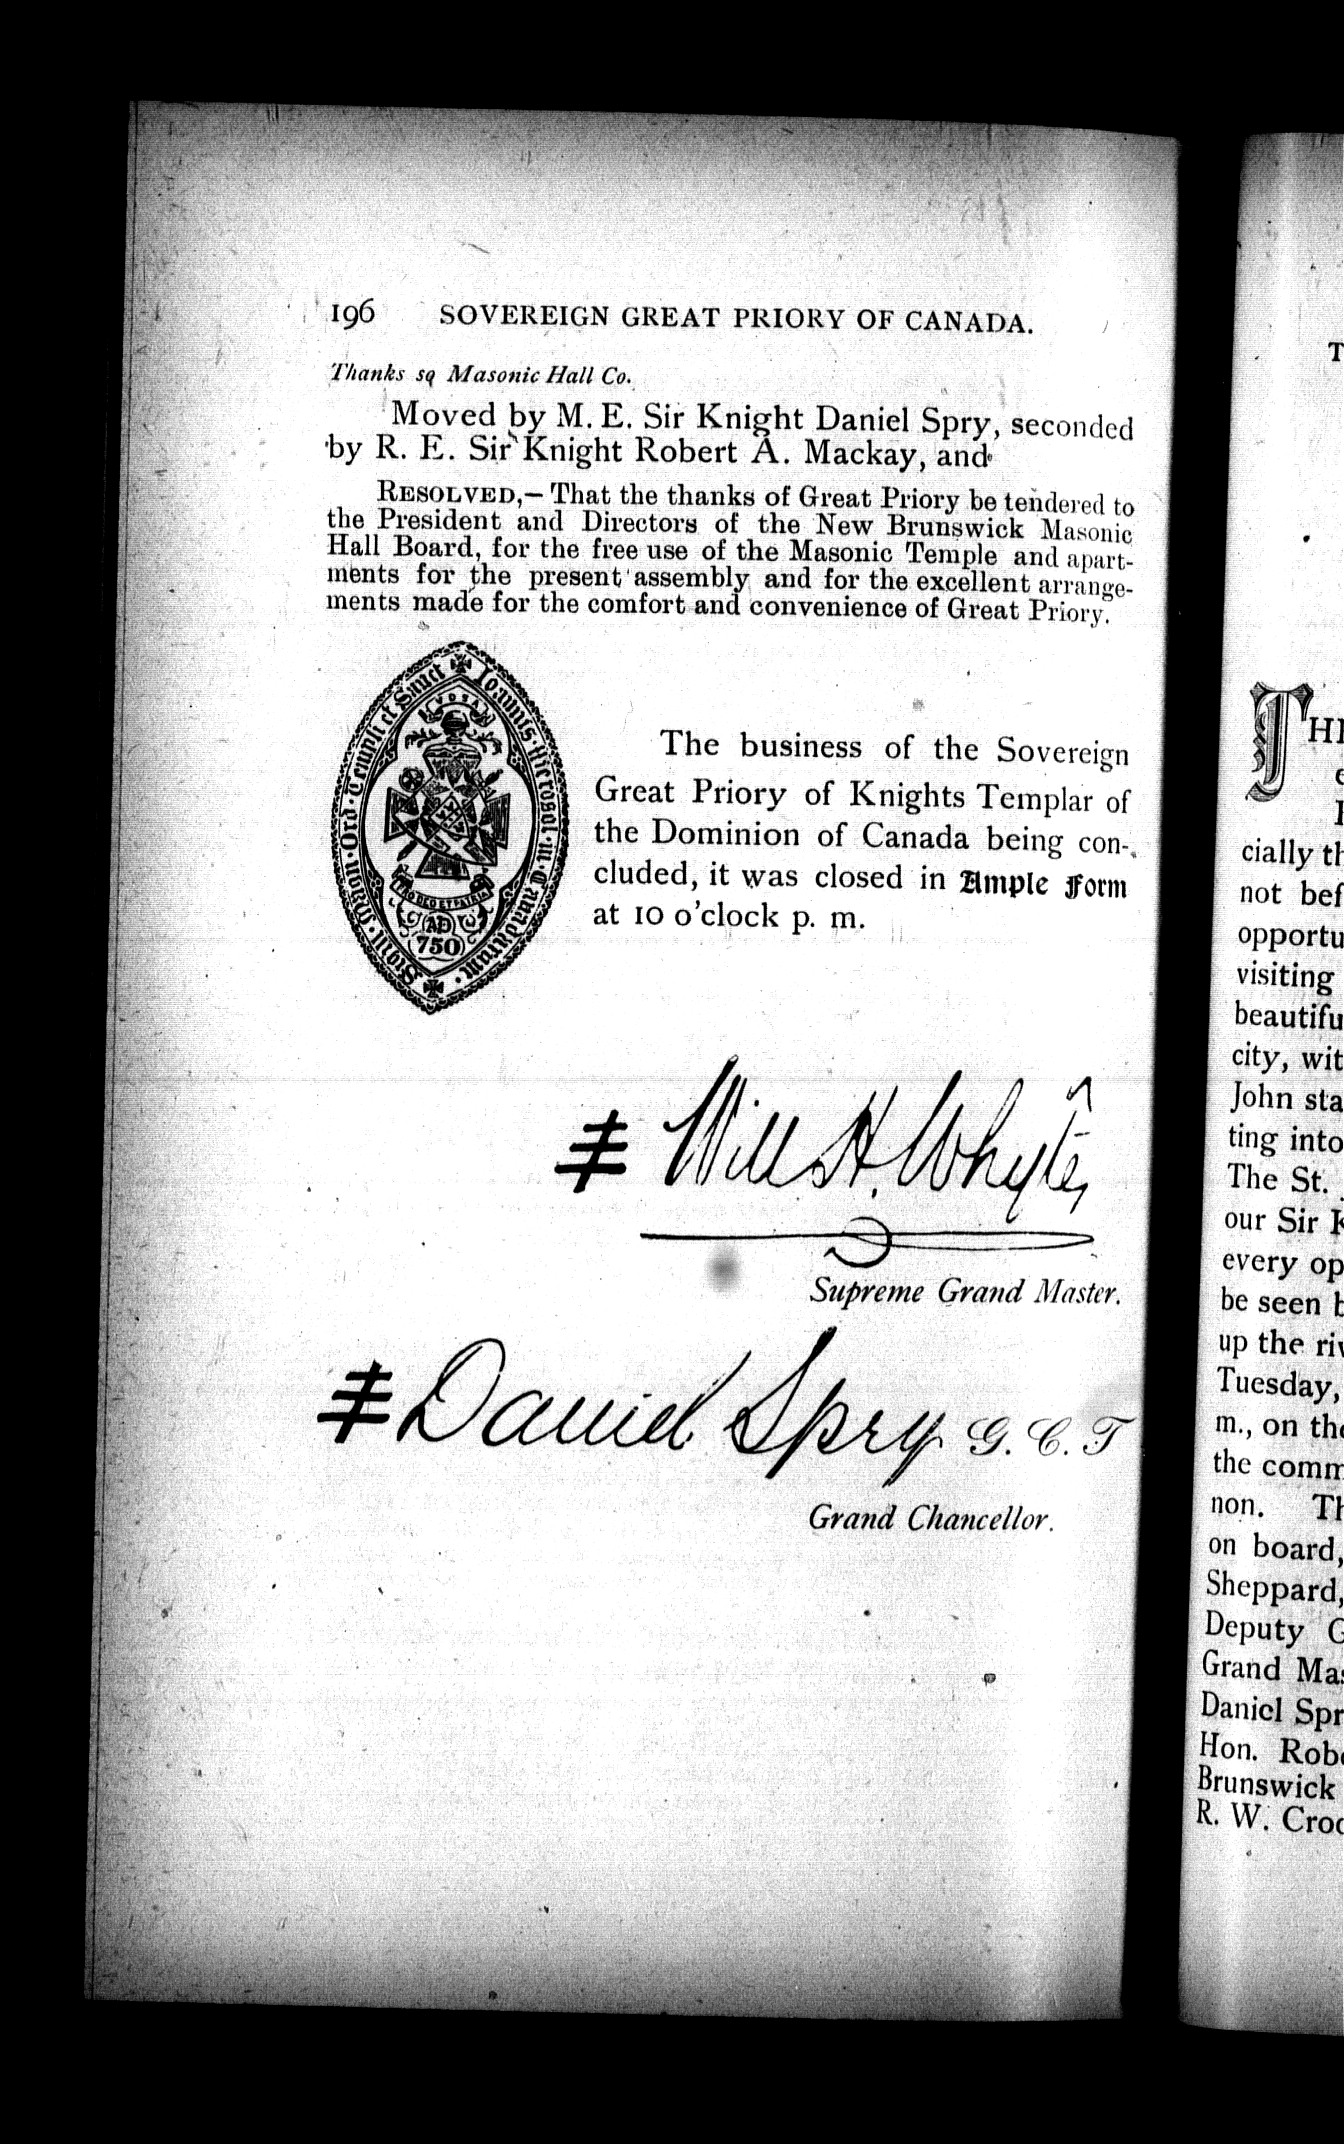 196 SOVEREIGN GREAT PRIORY OF CANADA.
Thanks sq Masonic Hall Co.
Moved by M. E. Sir Knight Daniel Spry, seconded
by R. E. Sir Knight Robert A. Mackay, and
RESOLVED,— That the thanks of Great Priory be tendered to
the President and Directors of the New Brunswick Masonic
Hall Board, for the free use of the Masonic Temple and apart-
ments for the present assembly and for the excellent arrange-
ments made for the comfort and convenience of Great Priory.
AD
750
The business of the Sovereign
Great Priory of Knights Templar of
the Dominion of Canada being con-
cluded, it was closed in Ample Form
at 10 o'clock p. m.
Will H. Whyte
Supreme Grand Master.
Daniel Spry G. C. T
Grand Chancellor.
T
THE
cially th
not bef
opportu
visiting
beautifu
city, wit
John sta
ting into
The St.
our Sir K
every op
be seen b
up the riv
Tuesday,
m., on the
the comm
non. Th
on board,
Sheppard,
Deputy G
Grand Mas
Daniel Spr
Hon. Robe
Brunswick
R. W. Croc